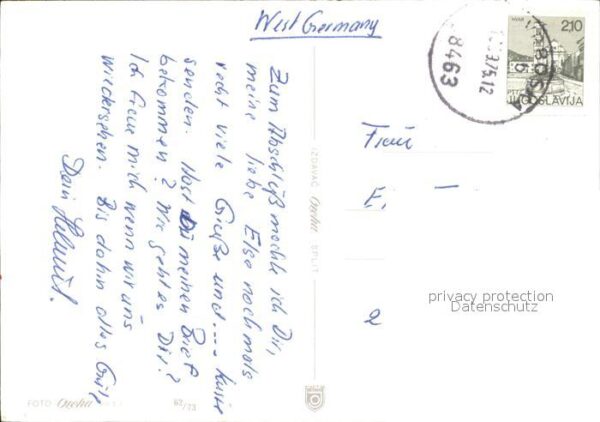 West Germany
Zum Abschluß möchte ich Dir,
meine liebe Else nochmals
recht viele Grüße und.... Küsse
senden. Hast Du meinen Brief
bekommen? Wie geht es Dir?
Ich freue mich wenn wir uns
wiedersehen. Bis dahin alles Gute
Dein Helmut.
HVAR
2,10
JUGOSLAVIJA
58463
Frau
E.
2
IZDAVAČ Ozeha SPLIT
privacy protection
Datenschutz
FOTO Ozeha
62/73